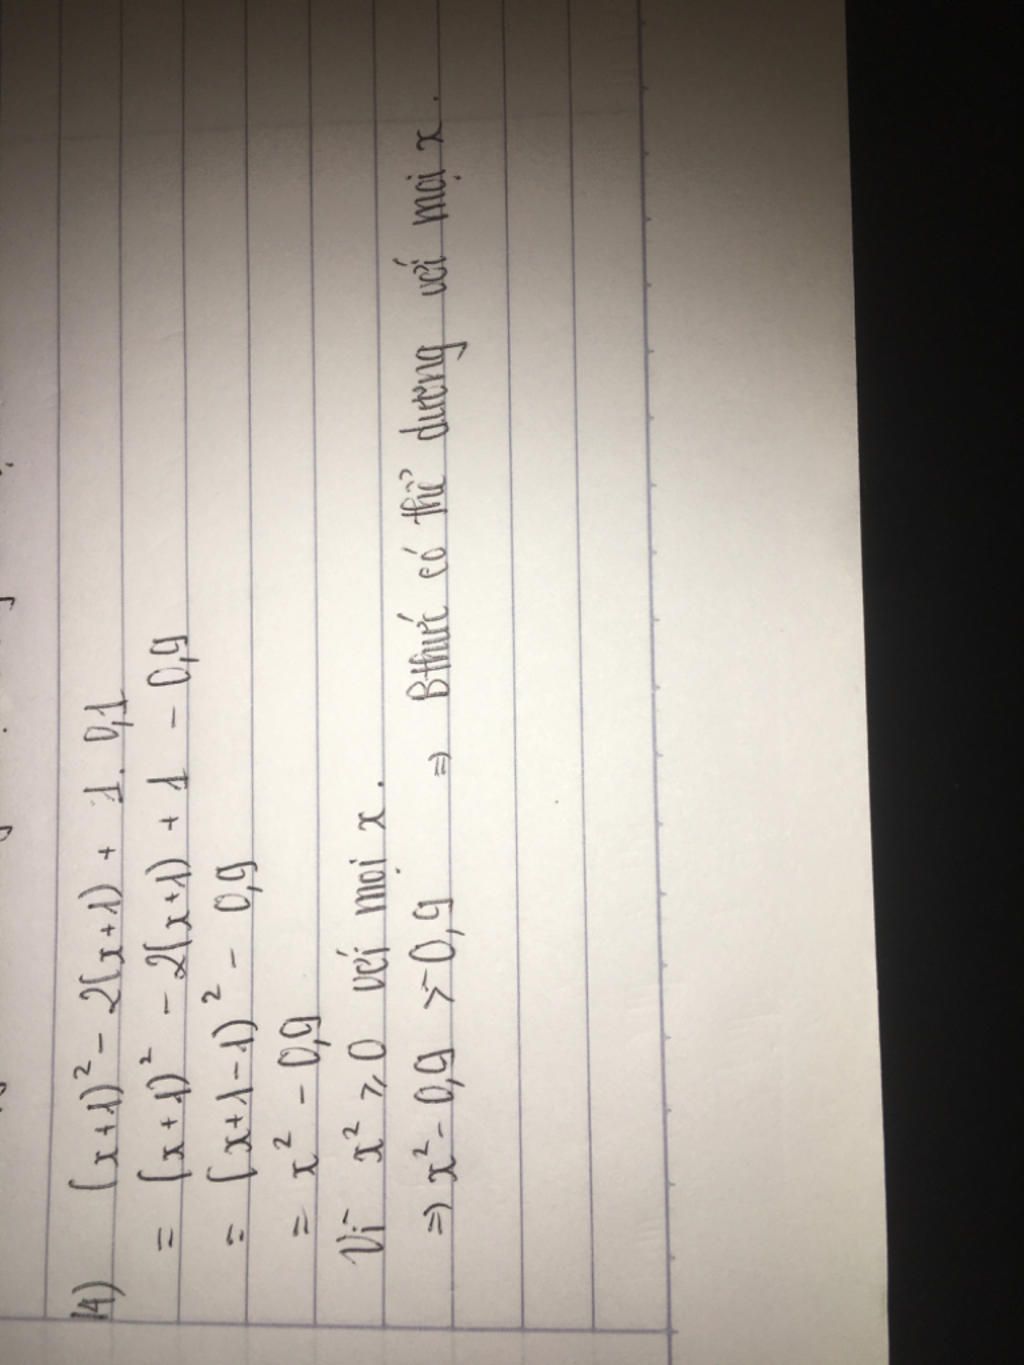 14) (x+1)² - 2(x+1) + 1. 0,1
= (x+1)² - 2(x+1) + 1 - 0,9
= (x+1-1)² - 0,9
= x² - 0,9
Vì x² ⩾ 0 với mọi x.
⇒ x² - 0,9 > -0,9 ⇒ Bthức có thể dương với mọi x.